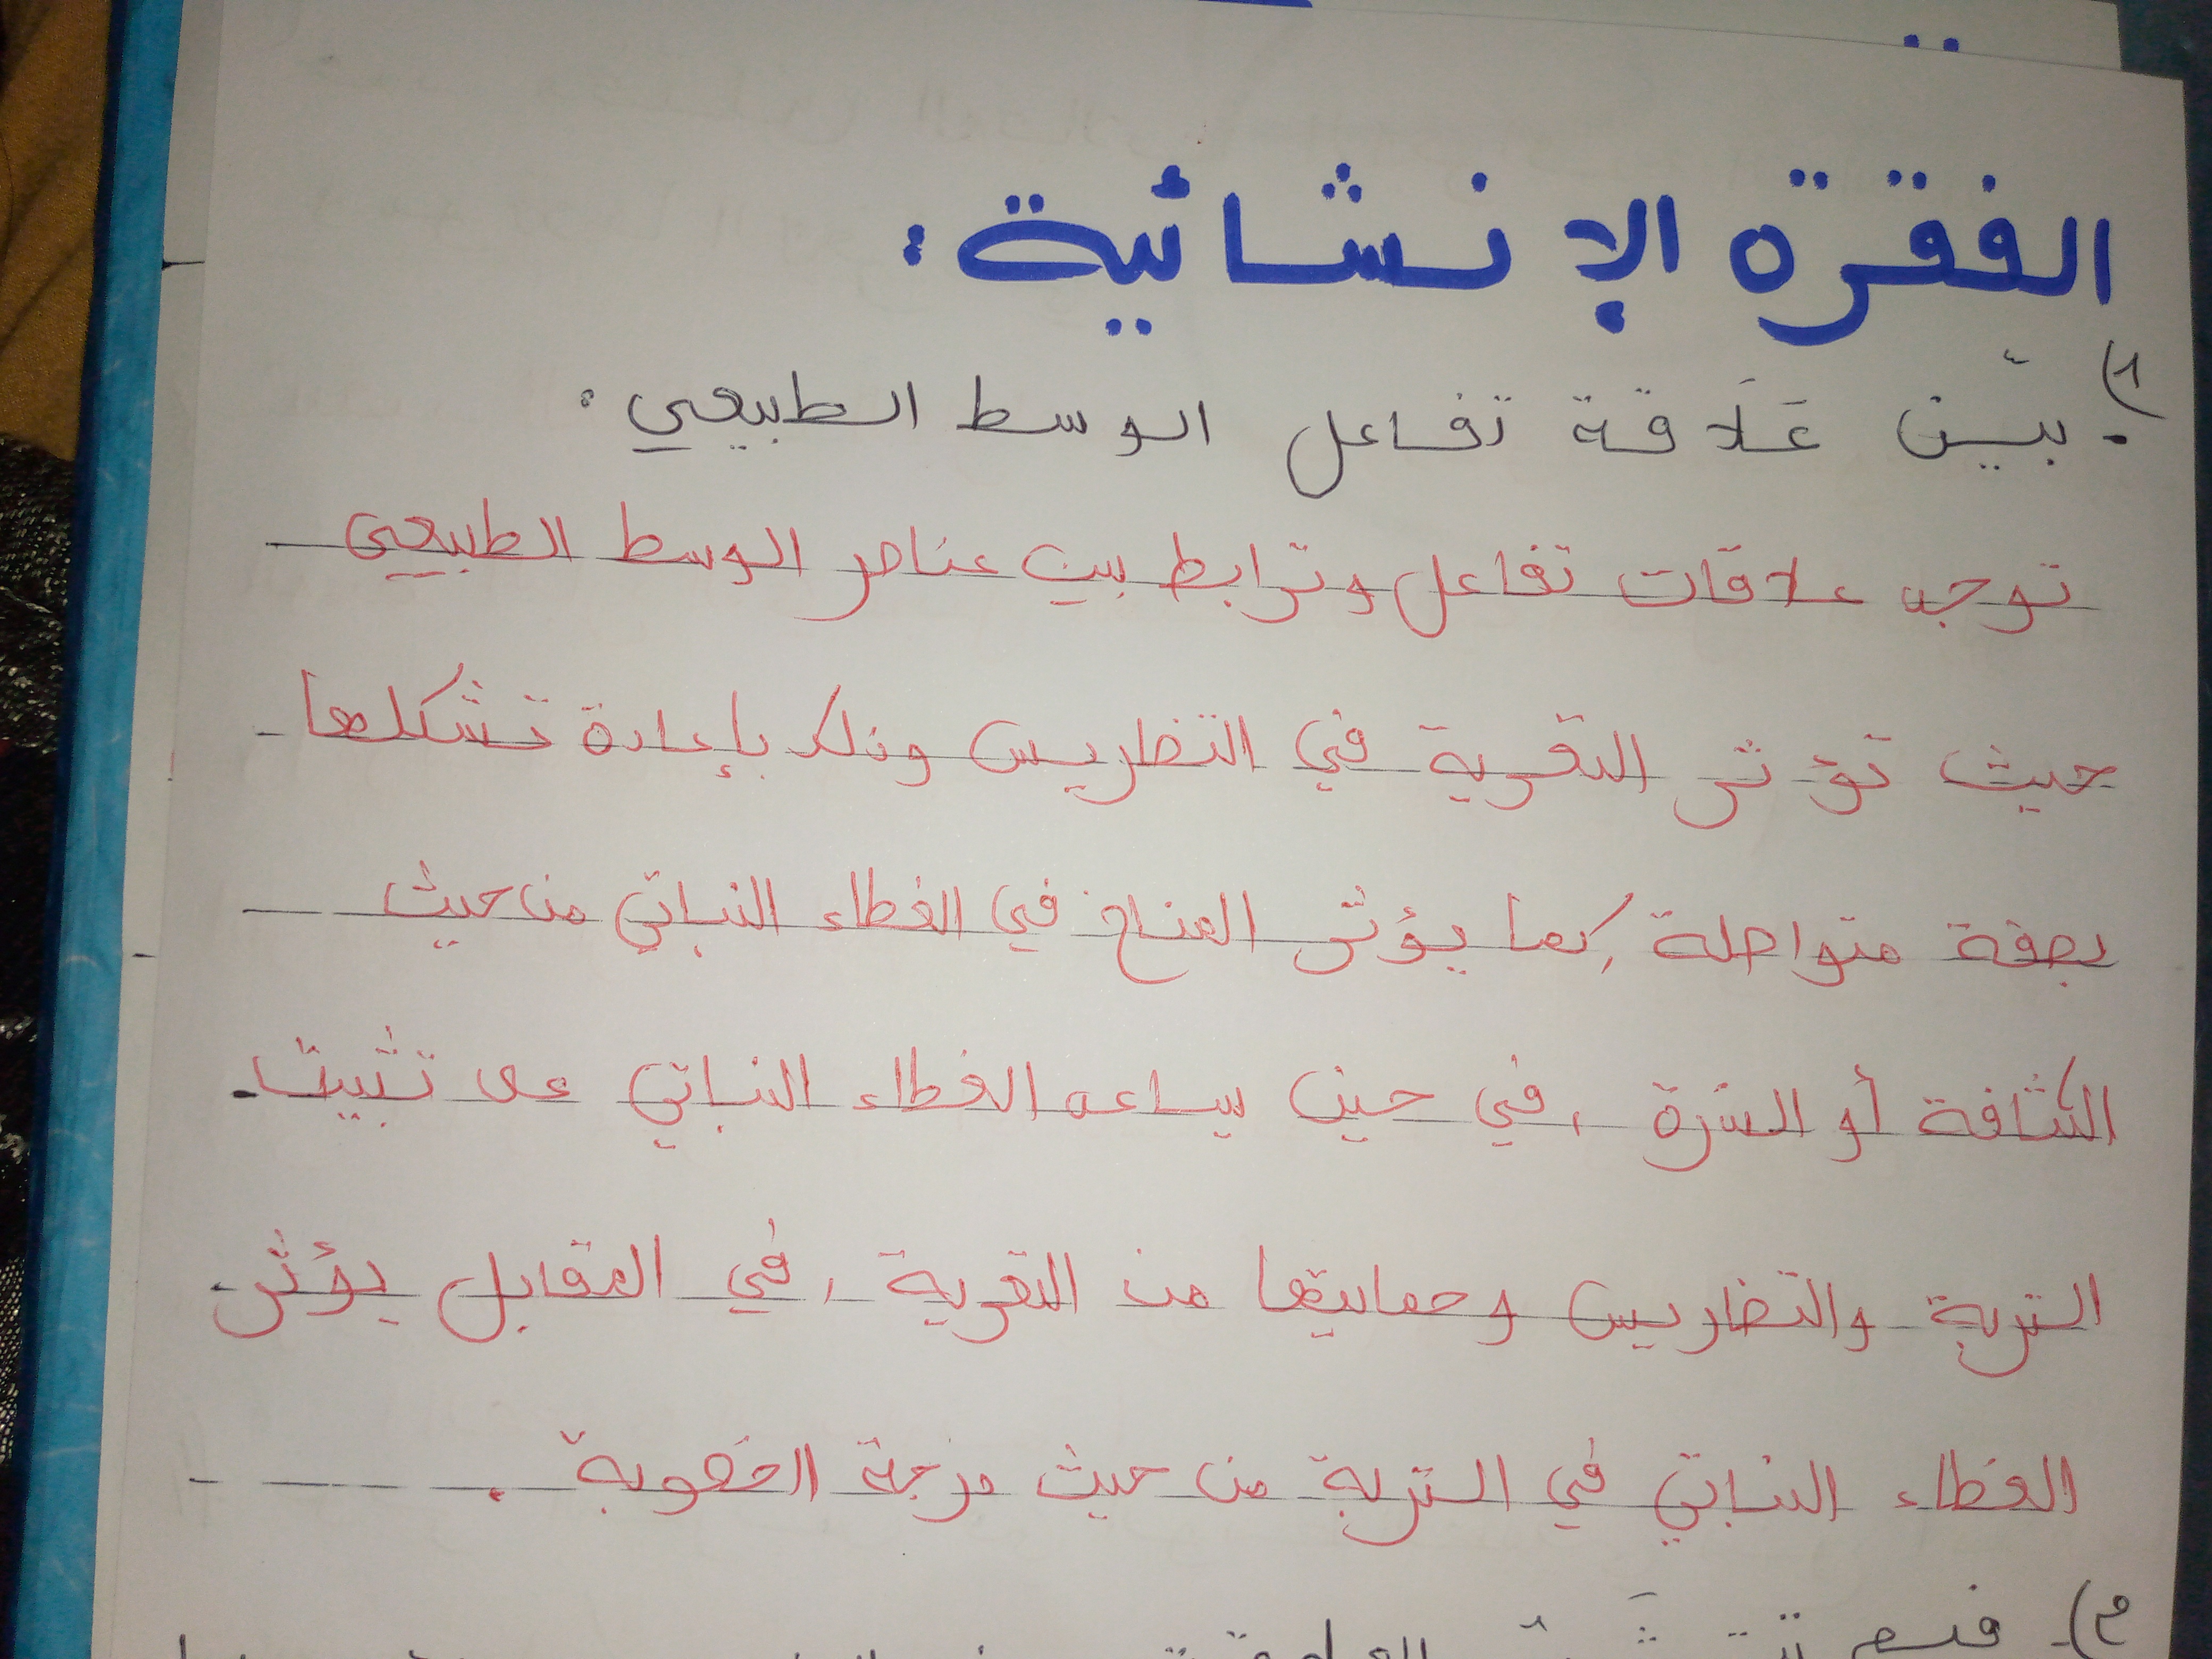 الفقرة الإنشائية:
1)
- بيّن عَلَاقة تفاعل الوسط الطبيعي:
توجد علاقات تفاعل وترابط بين عناصر الوسط الطبيعي
حيث تؤثر التعرية في التضاريس وذلك بإعادة تشكلها
بصفة متواصلة, كما يؤثر المناخ في الغطاء النباتي من حيث
الكثافة أو الندرة, في حين يساعد الغطاء النباتي على تثبيت
التربة والتضاريس وحمايتها من التعرية, في المقابل يؤثر
الغطاء النباتي في التربة من حيث درجة الخصوبة.
2)-